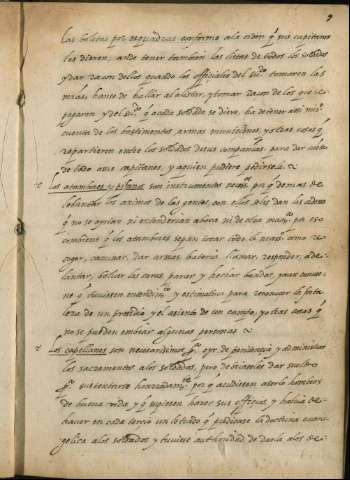 9
las boletas por esquadras conforme a la orden q̃ sus capitanes
les dieren, ande tener tambien las listas de todos los soldados
y dar racon dellos quando los officiales del su.º tomaren las
mras, hanse de hallar al alistar, y tomar racon de los que se
pagaren y del su.º q̃ a cada soldado se diere, ha de tener assi mis.º
cuenta de los bastimentos armas municiones y otras cosas q̃
repartieren entre los soldados de sus companias para dar cuenta
de todo a sus capitanes, y a quien pudiere pedirsela ~
Los atambores y pifanos son instrumentos necess.ºˢ por q̃ demas de
levantar los animos de las gentes con ellos se les dan las ordenes
q̃ no se oyrian ni entenderian a boca ni de otra man.ª por eso
combiene q̃ los atambores sepan tocar todo lo necess.º como re-
coger, caminar, dar armas bateria llamar responder, ade-
lantar, bolver las caras parar y hechar bandos, para
q̃ tuviesen entendim.º y estimativa para reconocer la forta-
leza de un presidio y el asiento de un campo, y otras cosas q̃
no se pueden embiar algunas personas ~
Los capellanes son necesarisimos por q̃ de penitencia y administrar
los sacramentos a los soldados, pero devrianles dar sueldo
para sustentarse honrradam.ᵗᵉ por q̃ acudiesen a serlo hombres
de buena vida, y q̃ supiesen hazer sus officios, y havia de
haver en cada tercio un letrado q̃ pudicase la doctrina evan-
gelica a los soldados y tuviese authoridad de darla a los de-